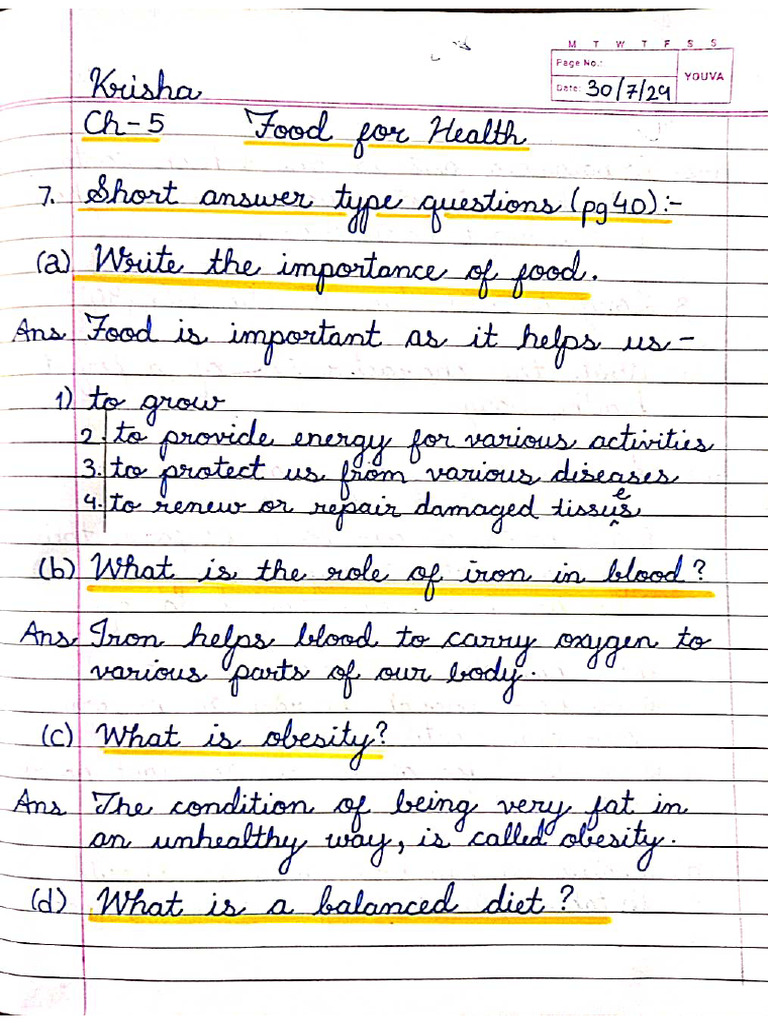 M T W T F S S
Page No.:
YOUVA
Date: 30/7/24
Krisha
Ch-5 Food for Health
7. Short answer type questions (pg 40):-
(a) Write the importance of food.
Ans Food is important as it helps us -
1) to grow
2. to provide energy for various activities
3. to protect us from various diseases
4. to renew or repair damaged tissues
(b) What is the role of iron in blood?
Ans Iron helps blood to carry oxygen to
various parts of our body.
(c) What is obesity?
Ans The condition of being very fat in
an unhealthy way, is called obesity.
(d) What is a balanced diet?